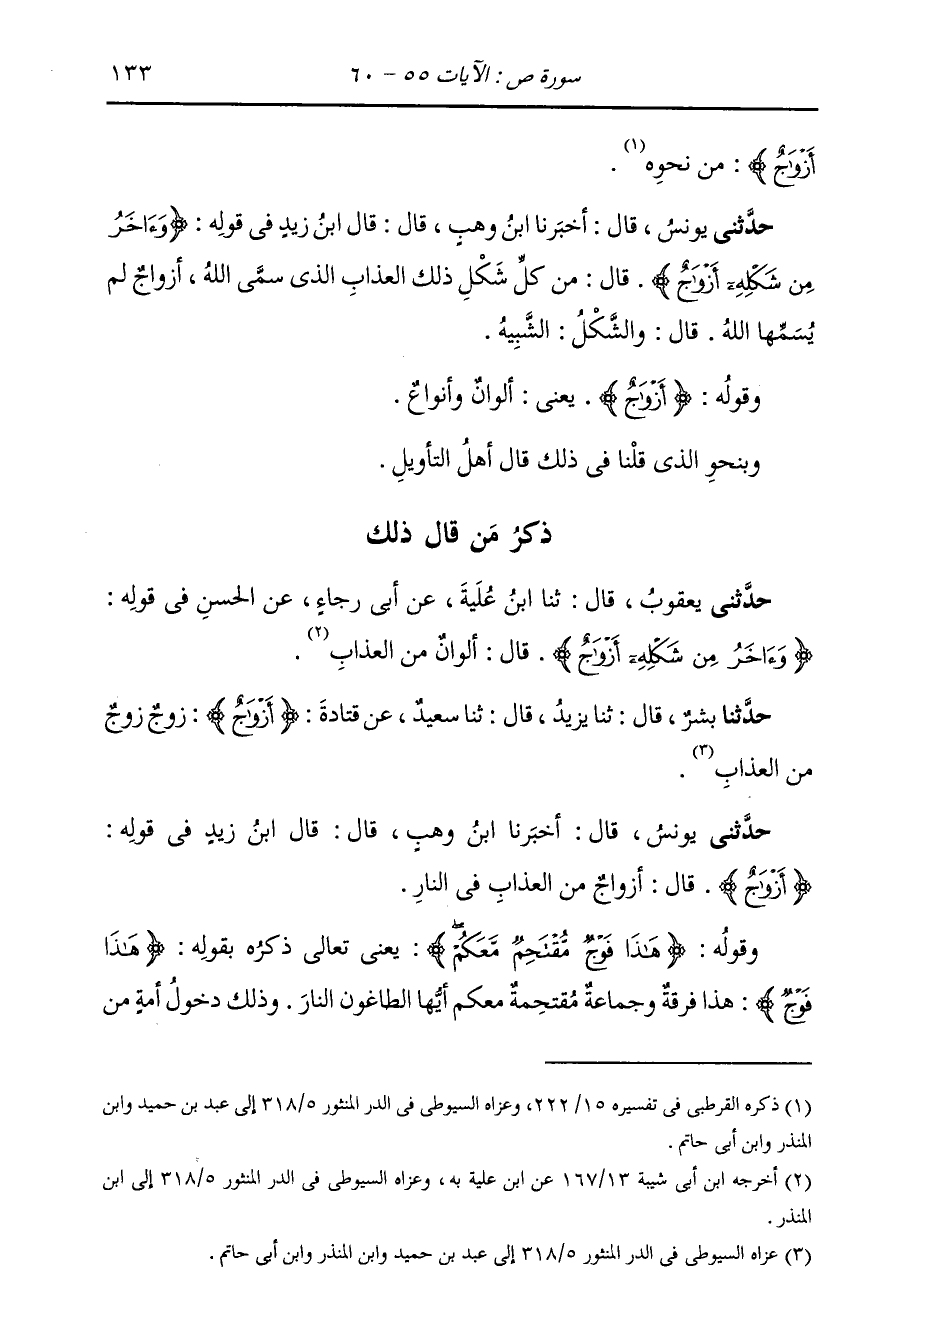 سورة ص : الآيات ٥٥ - ٦٠ ١٣٣
أَزْوَٰجٌ ﴾ : من نحوِه(١) .
حدَّثنى يونسُ ، قال : أخبَرنا ابنُ وهبٍ ، قال : قال ابنُ زيدٍ فى قولِه : ﴿ وَءَاخَرُ
مِن شَكْلِهِۦٓ أَزْوَٰجٌ ﴾ . قال : من كلِّ شَكْلِ ذلك العذابِ الذى سمَّى اللهُ ، أزواجٌ لم
يُسَمِّها اللهُ . قال : والشَّكْلُ : الشَّبِيهُ .
وقولُه : ﴿ أَزْوَٰجٌ ﴾ . يعنى : ألوانٌ وأنواعٌ .
وبنحوِ الذى قلْنا فى ذلك قال أهلُ التأويلِ .
ذكرُ مَن قال ذلك
حدَّثنى يعقوبُ ، قال : ثنا ابنُ عُلَيةَ ، عن أبى رجاءٍ ، عن الحسنِ فى قولِه :
﴿ وَءَاخَرُ مِن شَكْلِهِۦٓ أَزْوَٰجٌ ﴾ . قال : ألوانٌ من العذابِ(٢) .
حدَّثنا بشرٌ ، قال : ثنا يزيدُ ، قال : ثنا سعيدٌ ، عن قتادةَ : ﴿ أَزْوَٰجٌ ﴾ : زوجٌ زوجٌ
من العذابِ(٣) .
حدَّثنى يونسُ ، قال : أخبَرنا ابنُ وهبٍ ، قال : قال ابنُ زيدٍ فى قولِه :
﴿ أَزْوَٰجٌ ﴾ . قال : أزواجٌ من العذابِ فى النارِ .
وقولُه : ﴿ هَٰذَا فَوْجٌ مُّقْتَحِمٌ مَّعَكُمْۖ ﴾ : يعنى تعالى ذكرُه بقولِه : ﴿ هَٰذَا
فَوْجٌ ﴾ : هذا فرقةٌ وجماعةٌ مُقتحِمةٌ معكم أيُّها الطاغون النارَ . وذلك دخولُ أمةٍ من
(١) ذكره القرطبى فى تفسيره ١٥/ ٢٢٢، وعزاه السيوطى فى الدر المنثور ٣١٨/٥ إلى عبد بن حميد وابن
المنذر وابن أبى حاتم .
(٢) أخرجه ابن أبى شيبة ١٦٧/١٣ عن ابن علية به ، وعزاه السيوطى فى الدر المنثور ٣١٨/٥ إلى ابن
المنذر .
(٣) عزاه السيوطى فى الدر المنثور ٣١٨/٥ إلى عبد بن حميد وابن المنذر وابن أبى حاتم .